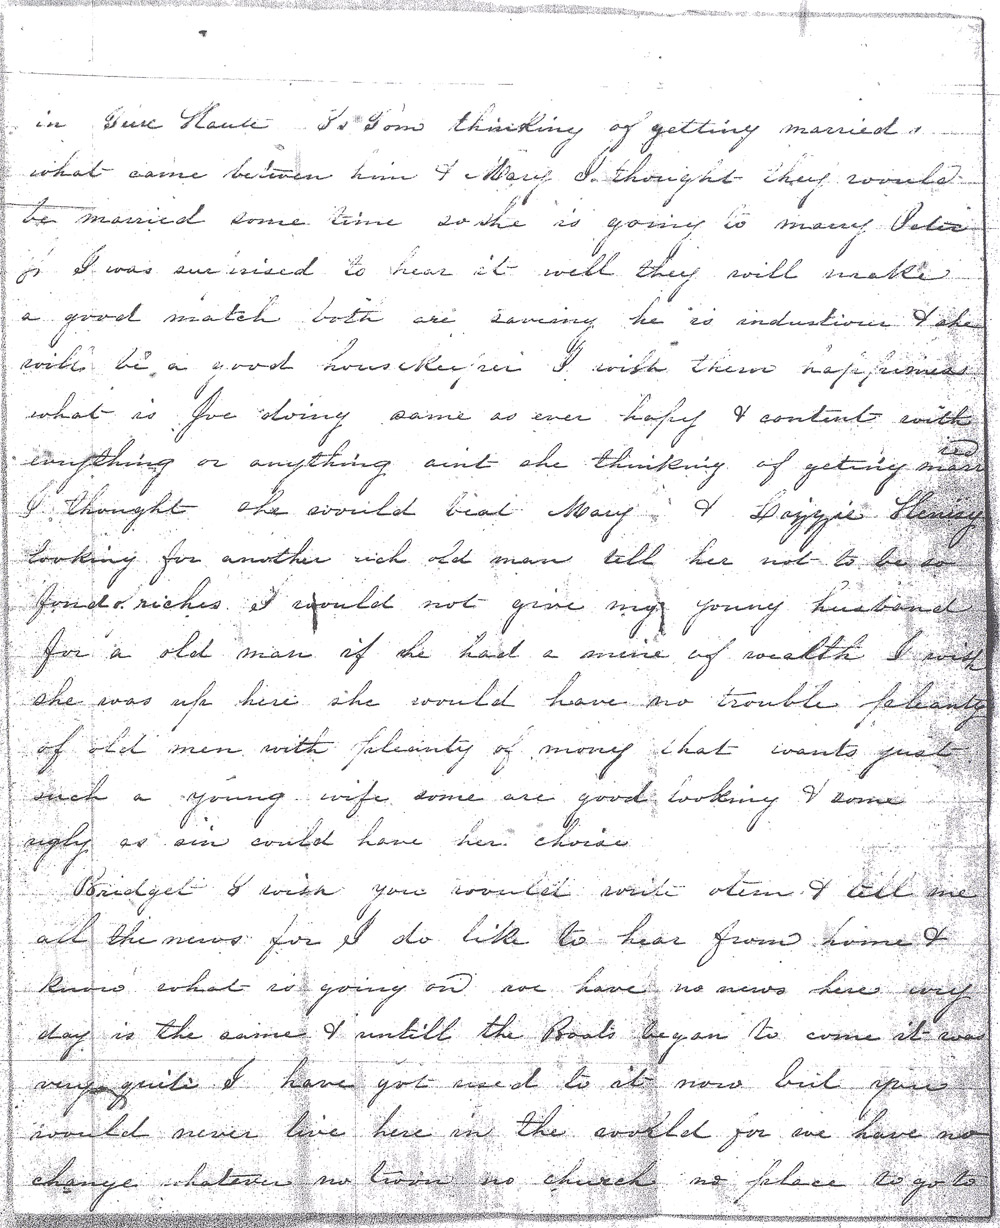 in Terre Haute Is Tom thinking of getting married
what came between him & Mary I thought they would
be married some time so she is going to marry Peter
jr I was surprised to hear it well they will make
a good match both are saveing he is industiour & she
will be a good housekeeper I wish them happiness
what is Joe doing same as ever hapy & content with
everything or anything aint she thinking of geting married
I thought she would beat Mary & Lizzie
looking for another rich old man tell her not to be so
fond o riches I would not give my young husband
for a old man if he had a mine of wealth I wish
she was up here she would have no trouble pleanty
of old men with pleanty of money that wants just
such a young wife some are good looking & some
ugly as sin could have her choise
Bridget I wish you would write oten & tell me
all the news for I do like to hear from home &
know what is going on we have no news here evry
day is the same & untill the Boats began to come it was
very quite I have got used to it now but you
would never live here in the world for we have no
change whatever no town no church no place to go to